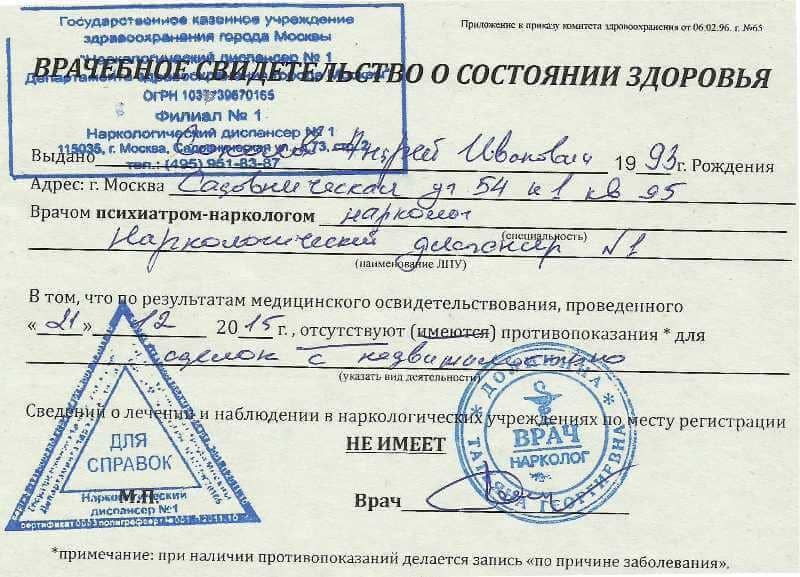 Государственное казенное учреждение
здравоохранения города Москвы
"Наркологический диспансер № 1
Департамента здравоохранения города Москвы"
ОГРН 1037739670165
Филиал № 1
Наркологический диспансер № 1
115035, г. Москва, Садовническая ул.,
тел.: (495) 951-83-87
Приложение к приказу комитета здравоохранения от 06.02.96. г. №65
ВРАЧЕБНОЕ СВИДЕТЕЛЬСТВО О СОСТОЯНИИ ЗДОРОВЬЯ
Выдано Андрей Иванович 1993г. Рождения
Адрес: г. Москва Садовническая ул 54 к1 кв 95
Врачом психиатром-наркологом нарколог
(специальность)
Наркологический диспансер №1
(наименование ЛПУ)
В том, что по результатам медицинского освидетельствования, проведенного
«21» 12 2015 г., отсутствуют (имеются) противопоказания * для
сделок с недвижимостью
(указать вид деятельности)
Сведений о лечении и наблюдении в наркологических учреждениях по месту регистрации
НЕ ИМЕЕТ
ДЛЯ
СПРАВОК
Наркологический
диспансер №1
М.П.
ВРАЧ
НАРКОЛОГ
ГЕОРГИЕВНА
Врач
*примечание: при наличии противопоказаний делается запись «по причине заболевания».